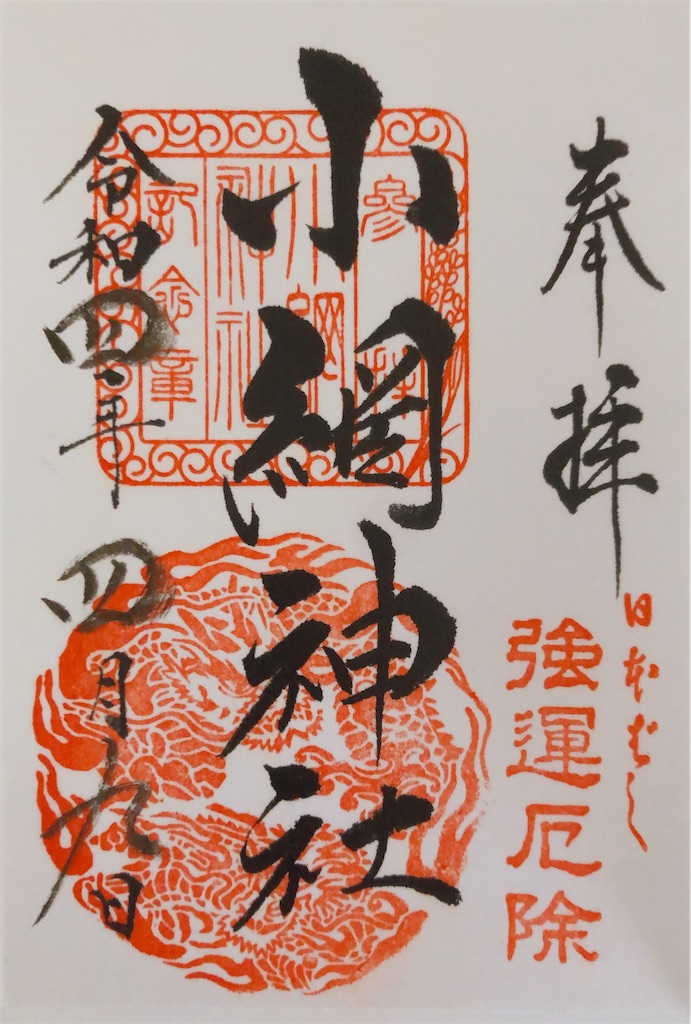 奉拝
日本ばし
強運厄除
小網神社
参拝
小網
神社
記念章
令和四年 四月九日